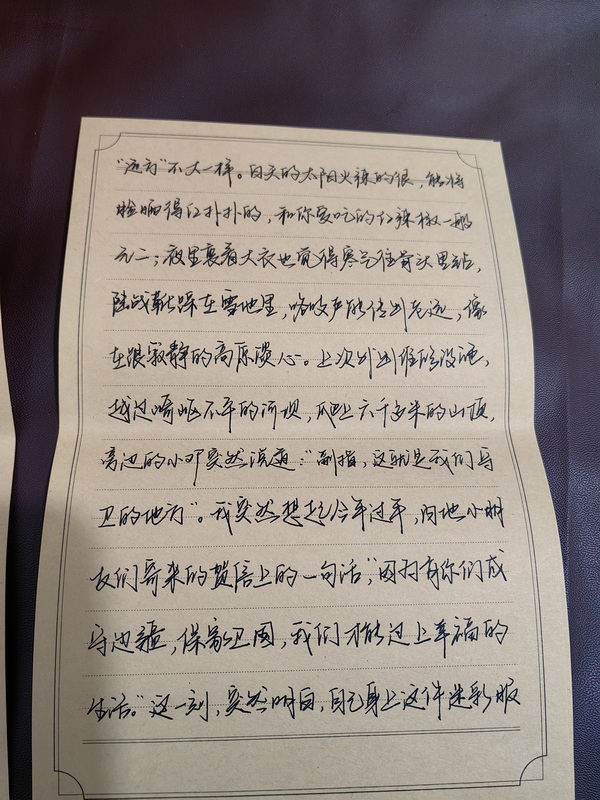 "远方"不大一样。白天的太阳火辣的很，能将
脸晒得红扑扑的，和你爱吃的红辣椒一般
无二；夜里裹着大衣也觉得寒气往骨头里钻，
陆战靴踩在雪地里，咯吱声能传出老远，像
在跟寂静的高原谈心。上次外出
越过崎岖不平的河坝，爬上六千多米的山顶，
旁边的小邓突然说道："副指，这就是我们守
卫的地方"。我突然想起今年过年，内地小朋
友们寄来的贺信上的一句话，"因为有你们戍
守边疆，保家卫国，我们才能过上幸福的
生活。"这一刻，突然明白，自己身上这件迷彩服